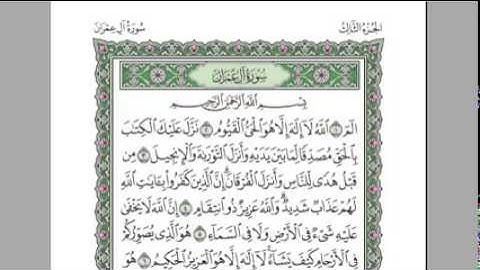 الجزء الثالث
سورة آل عمران
سُورَةُ آلِ عِمْرَانَ
بِسْمِ اللَّهِ الرَّحْمَٰنِ الرَّحِيمِ
الٓمٓ ١ اللَّهُ لَآ إِلَٰهَ إِلَّا هُوَ الْحَيُّ الْقَيُّومُ ٢ نَزَّلَ عَلَيْكَ الْكِتَٰبَ
بِالْحَقِّ مُصَدِّقًا لِّمَا بَيْنَ يَدَيْهِ وَأَنزَلَ التَّوْرَىٰةَ وَالْإِنجِيلَ ٣ مِن
قَبْلُ هُدًى لِّلنَّاسِ وَأَنزَلَ الْفُرْقَانَ ۗ إِنَّ الَّذِينَ كَفَرُوا بِـَٔايَٰتِ اللَّهِ
لَهُمْ عَذَابٌ شَدِيدٌ ۗ وَاللَّهُ عَزِيزٌ ذُو انتِقَامٍ ٤ إِنَّ اللَّهَ لَا يَخْفَىٰ
عَلَيْهِ شَىْءٌ فِى الْأَرْضِ وَلَا فِى السَّمَآءِ ٥ هُوَ الَّذِى يُصَوِّرُكُمْ
فِى الْأَرْحَامِ كَيْفَ يَشَآءُ ۚ لَآ إِلَٰهَ إِلَّا هُوَ الْعَزِيزُ الْحَكِيمُ ٦ هُوَ